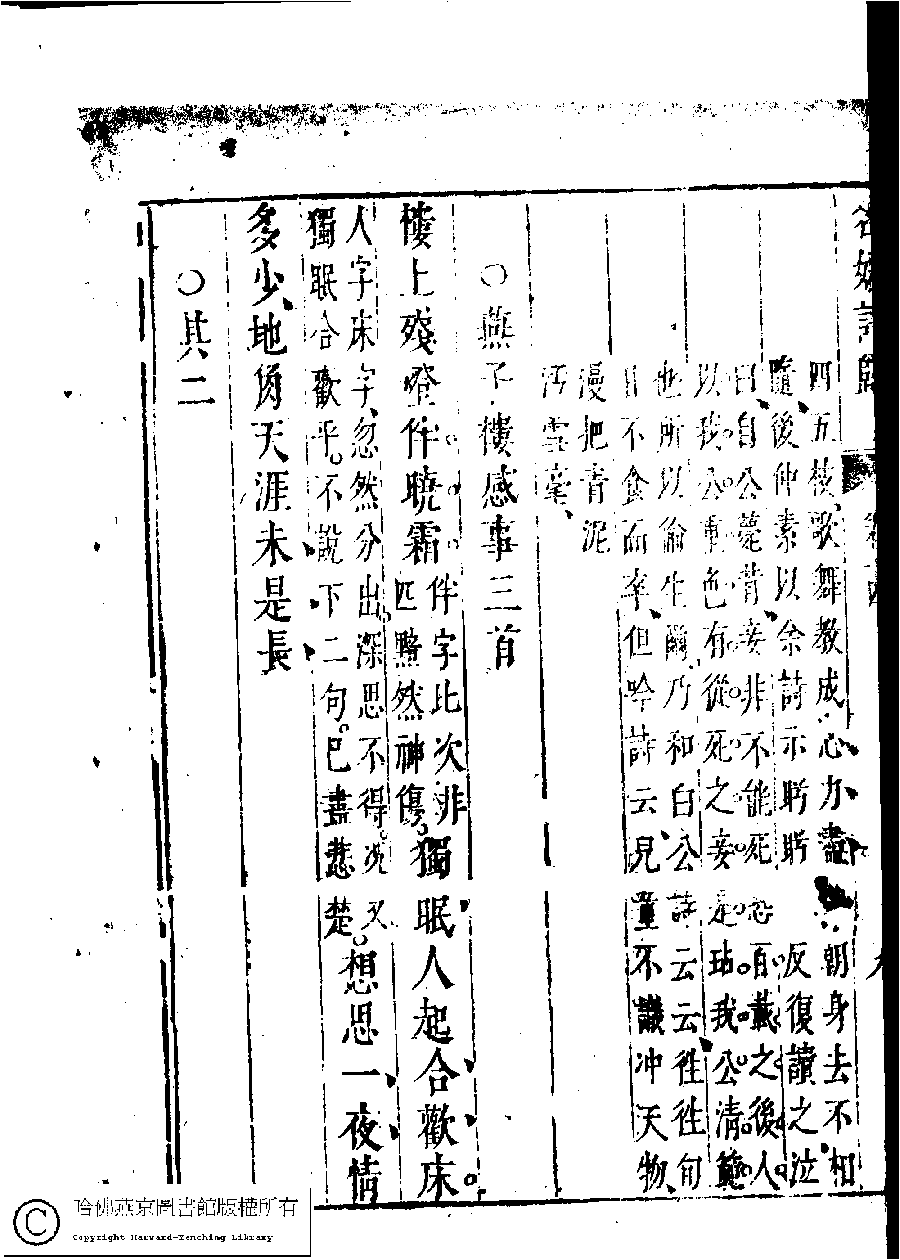 名媛詩歸 卷十四 九
四五枝歌舞教成心力盡朝身去不相
隨後仲素以余詩示盼盼反復讀之泣
曰自公薨背妾非不能死恐百載之後人
以我公重色有從死之妾是玷我公清範
也所以偷生爾乃和白公詩云云往往旬
日不食而卒但吟詩云兒童不識冲天物
漫把青泥
汚雪毫
○燕子樓感事三首
樓上殘燈伴曉霜伴字比次非匹黯然神傷獨眠人起合歡床
人字床字忽然分出深思不得况又獨眠合歡乎不說下二句已盡悲楚想思一夜情
多少地角天涯未是長
○其二
哈佛燕京圖書館版權所有
Copyright Harvard-Yenching Library